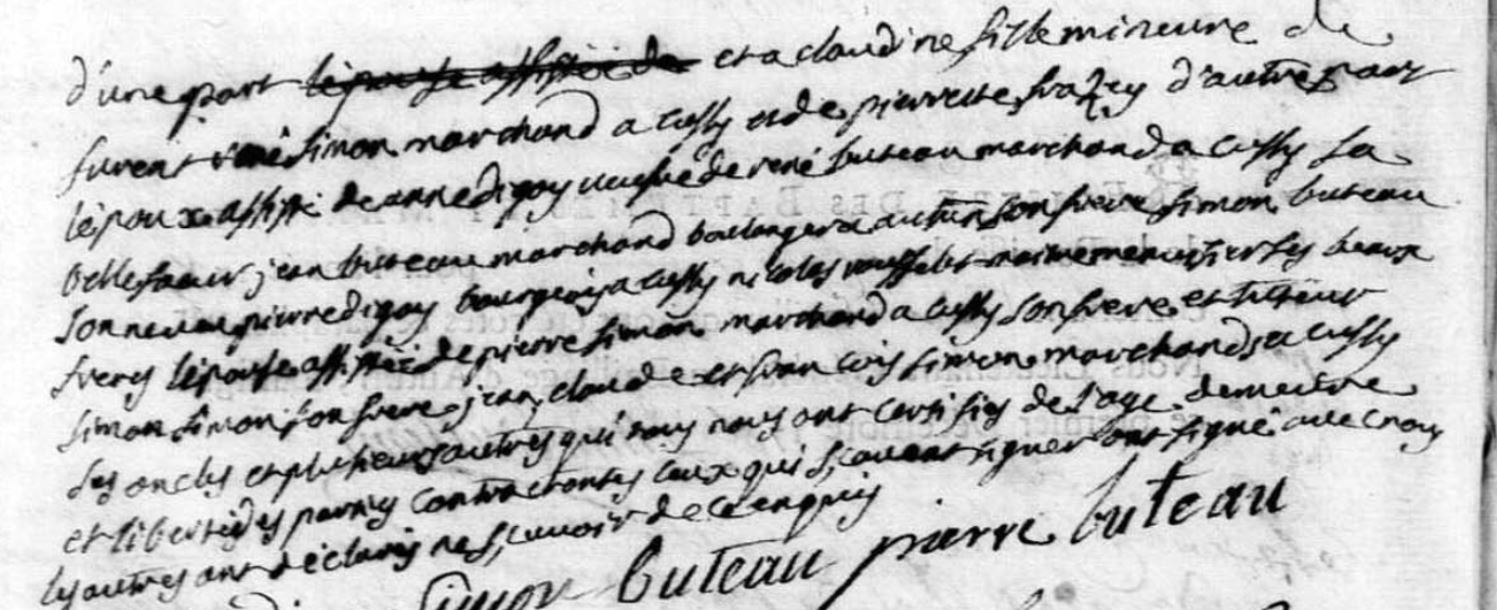 d'une part l'épouse assistée de et a claudine fille mineure de
furent rené simon marchand a cussy et de pierrette frazey d'autre part
lépoux assisté de anne digoy veufve de rené buteau marchand a cussy sa
belle soeur jean buteau marchand boulanger a autun son frere simon buteau
son neveu pierre digoy bourgeois a cussy nicolas ses beaux
freres lépouse assistée de pierre simon marchand a cussy son frere et tuteur
simon simon son frere jean, claude et francois simon marchands a cussy
ses oncles et plusieurs autres qui nous ont certifiés de l'age demeure
et libertés des parties contractantes ceux qui scavent signer ont signé avec nous
les autres ont déclarés ne scavoir de ce enquis
simon buteau pierre buteau